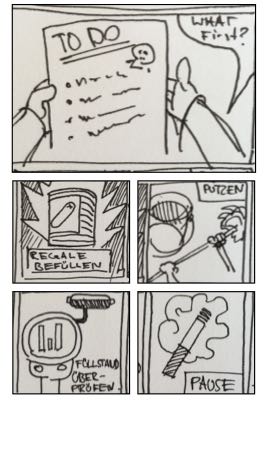 TO DO
WHAT
First?
REGALE
BEFÜLLEN
PUTZEN
FÜLLSTAND
ÜBER-
PRÜFEN.
PAUSE